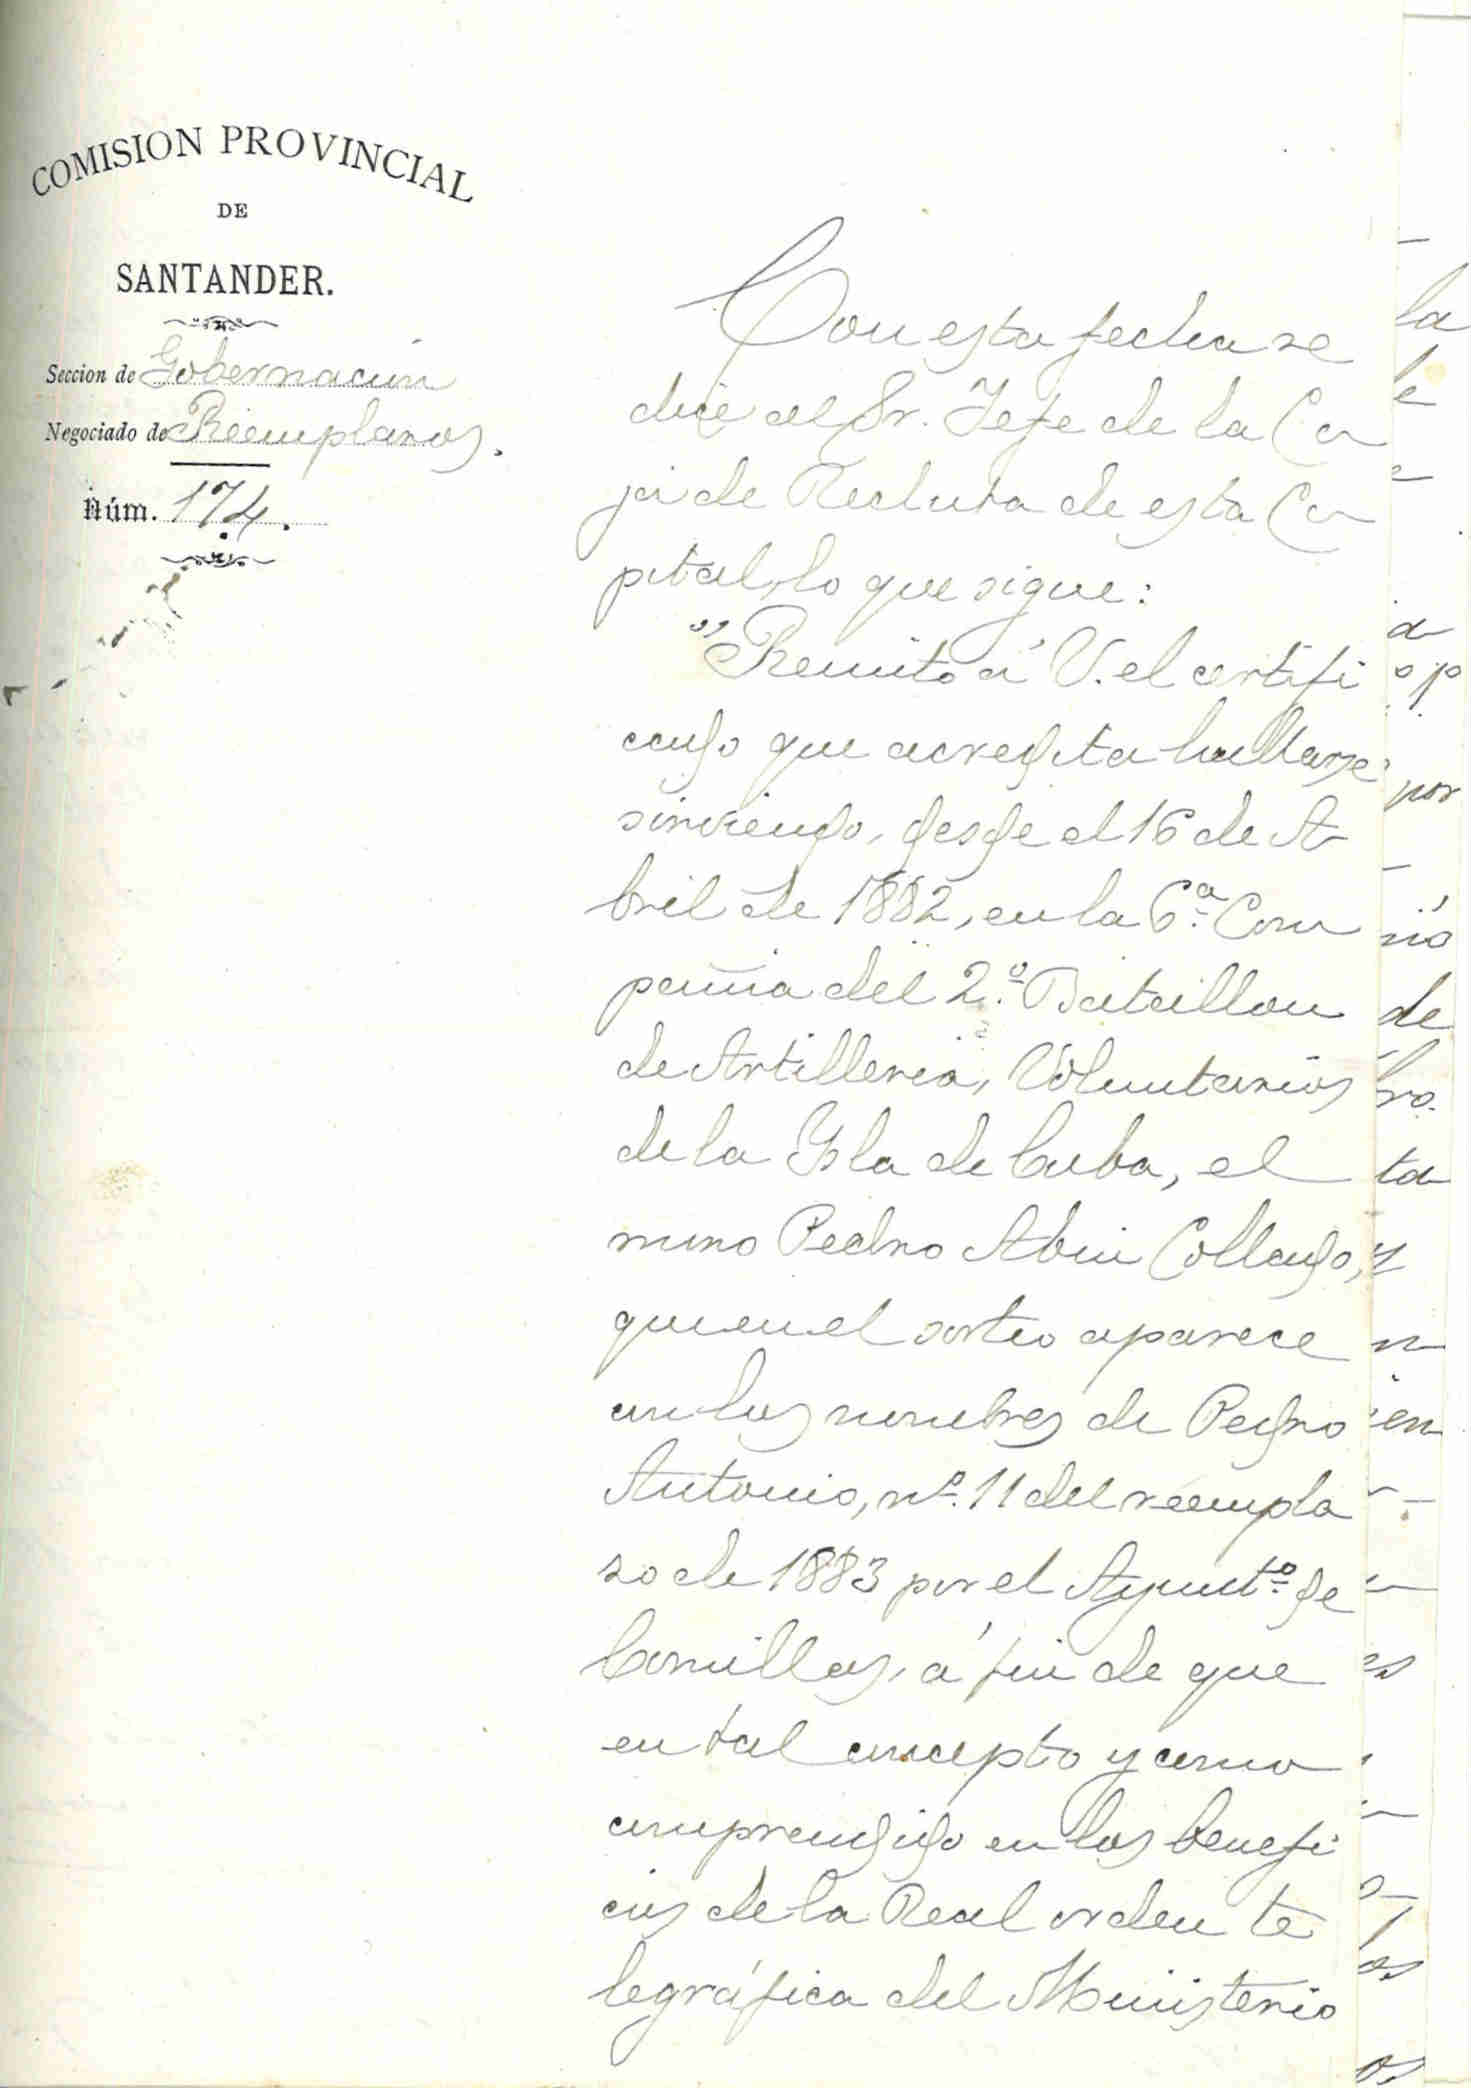 COMISION PROVINCIAL
DE
SANTANDER.
Seccion de Gobernación
Negociado de Reemplazos.
Núm. 174.
Con esta fecha se
dice al Sr. Jefe de la Ca
ja de Recluta de esta Ca
pital, lo que sigue:
"Remito á V. el certifi
cado que acredita hallarse
sirviendo, desde el 16 de A
bril de 1882, en la 6.ª Com
pañia del 2.º Batallon
de Artilleria, Voluntarios
de la Ysla de Cuba, el
mozo Pedro Abin Collado,
que en el sorteo aparece
con los nombres de Pedro
Antonio, nº. 11 del reempla
zo de 1883 por el Ayuntº. de
Comillas, á fin de que
en tal concepto y como
comprendido en los benefi
cios de la Real orden te
legráfica del Ministerio
la
le
a
op
por
nió
de
bro.
ta
y
n
en
es
os
os